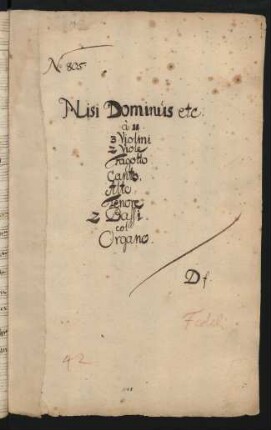 No 805.
Nisi Dominus etc
à 11
3 Violini
2 Viole
Fagotto
Canto.
Alto.
Tenore
2 Bassi
col
Organo.
Df.
Fedeli
42